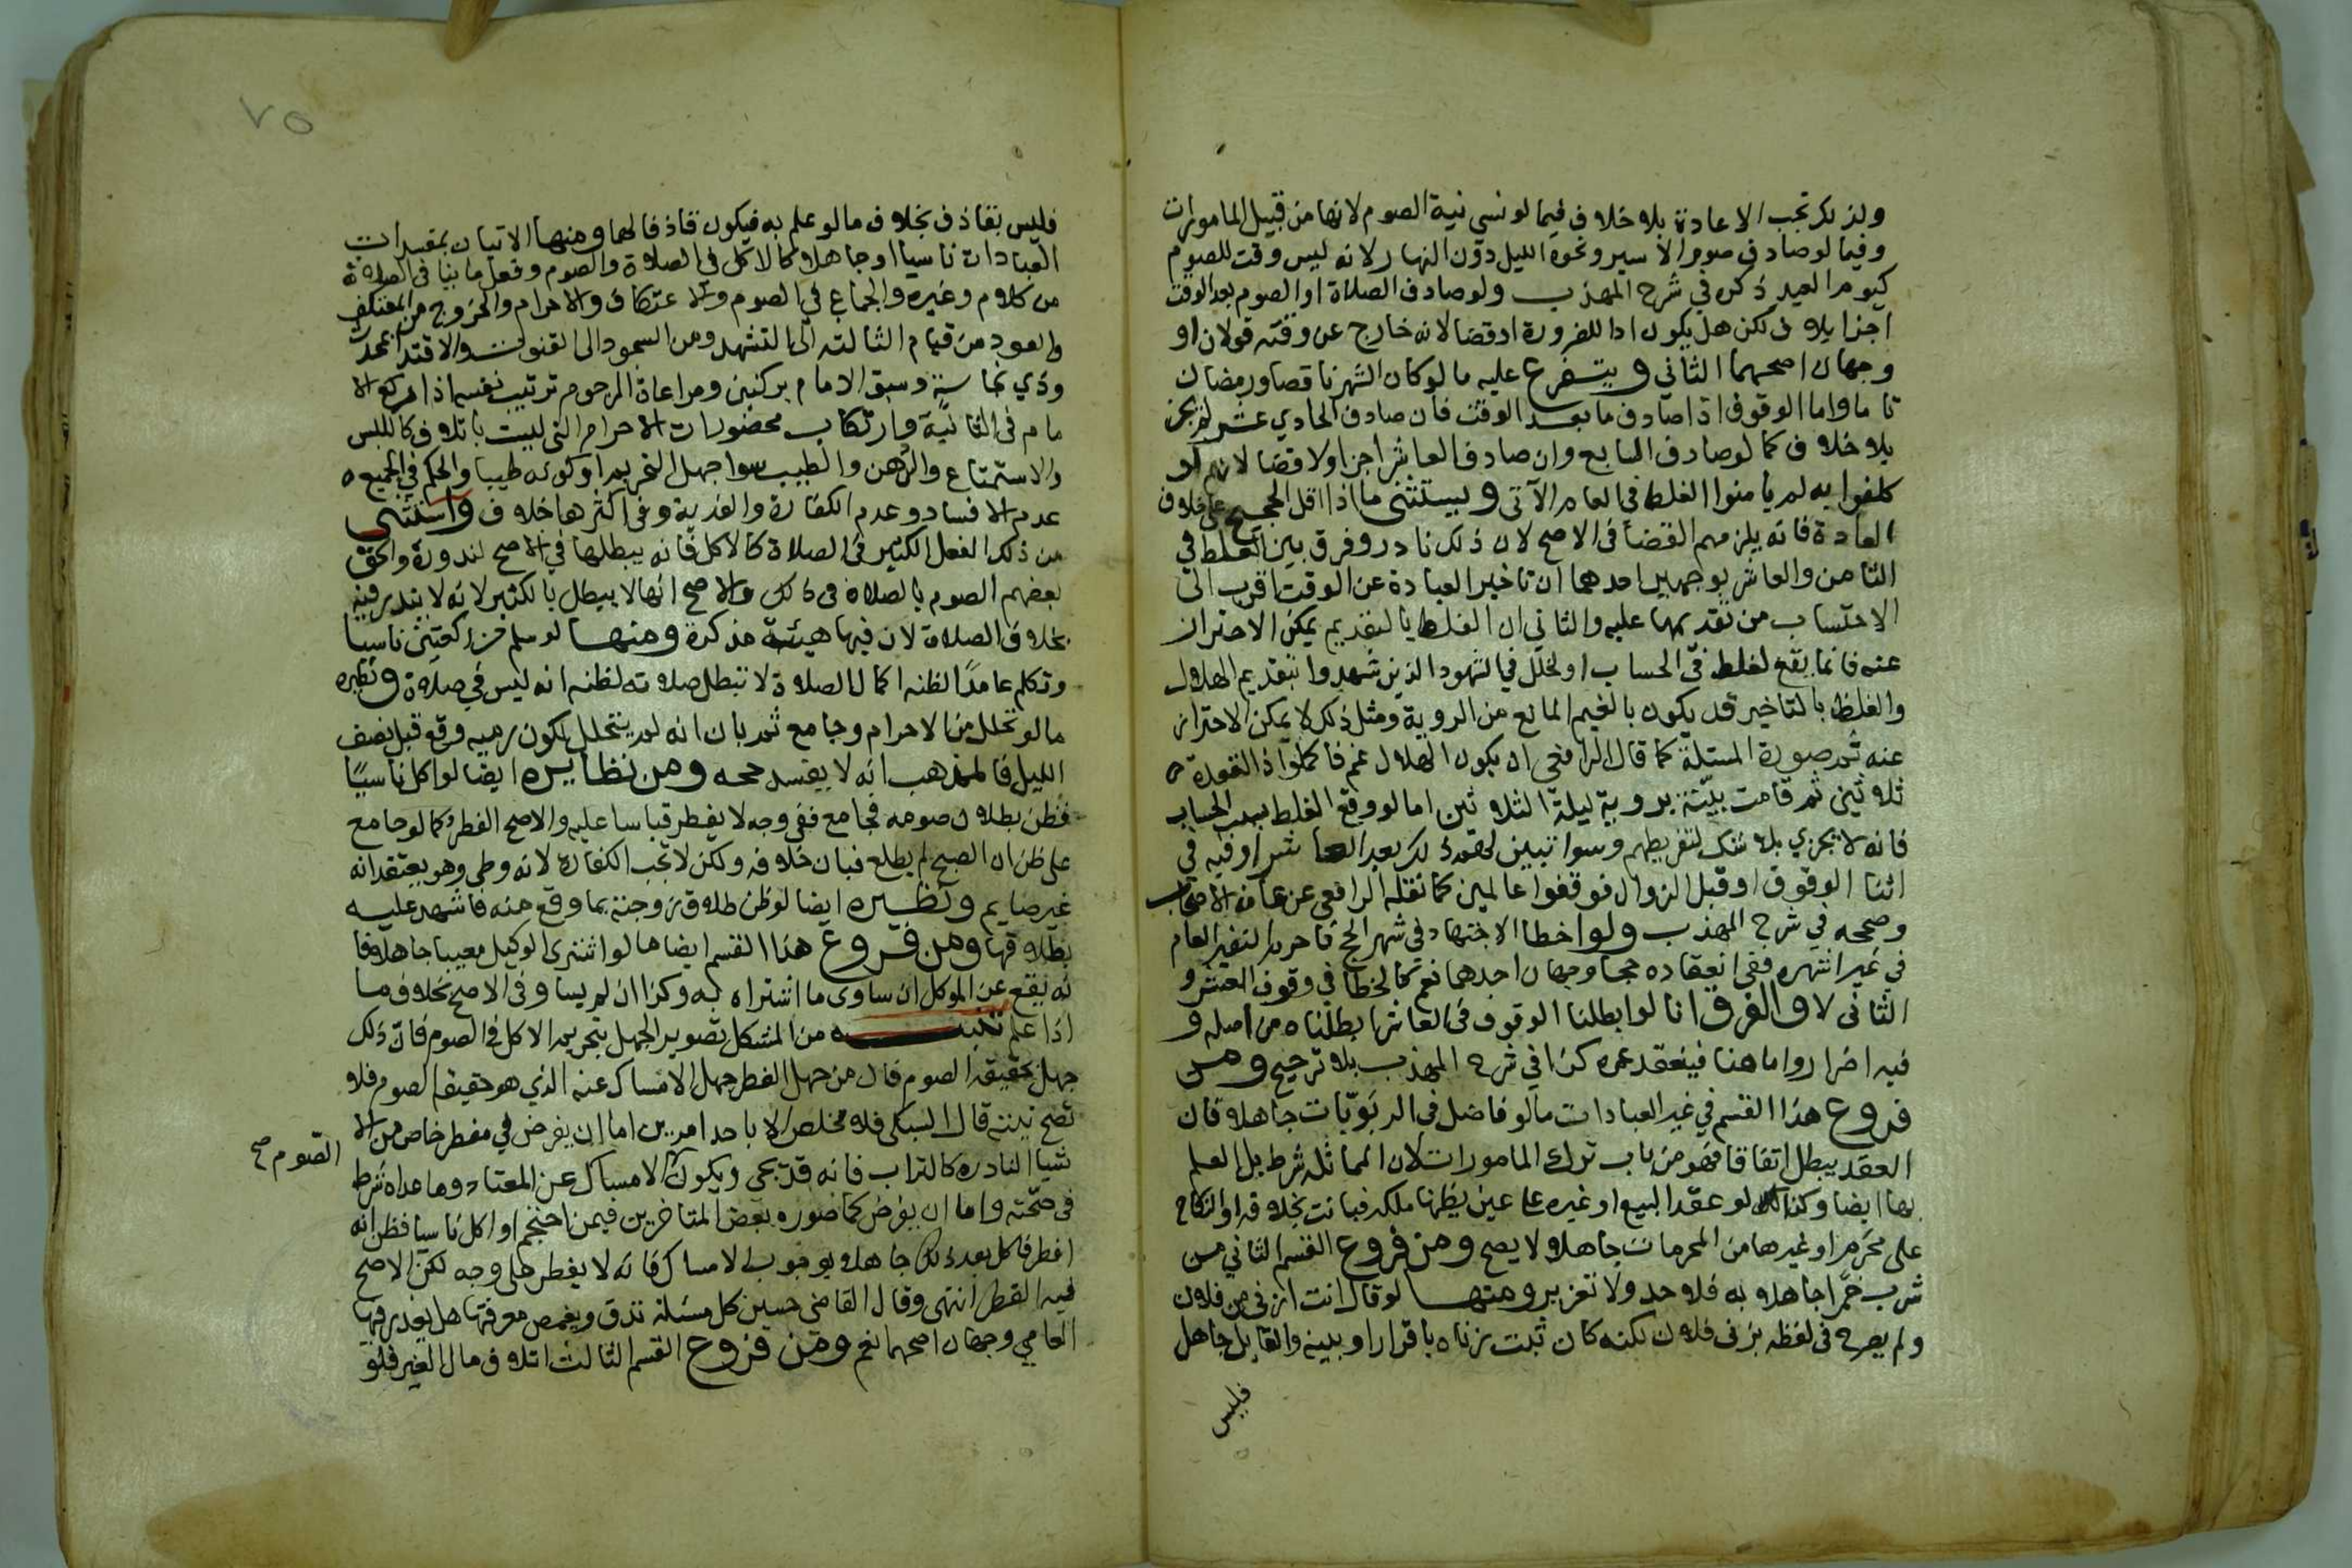 ولذلك تجب الاعادة بلا خلاف فيما لو نسي نية الصوم لانها من قبيل المامورات
وفيما لو صادف صوم الاسير ونحوه الليل دون النهار لانه ليس وقت للصوم
كيوم العيد ذكره في شرح المهذب ولو صادف الصلاة او الصوم بعد الوقت
اجزا بلا ف لكن هل يكون ادا للضرورة او قضا لانه خارج عن وقته قولان او
وجهان اصحهما الثاني ويتفرع عليه ما لو كان الشهر ناقصا ورمضان
تاما واما الوقوف اذا صادف ما بعد الوقت فان صادف الحادي عشر لم يجز
بلا خلاف كما لو صادف السابع وان صادف العاشر اجزا ولا قضا لانهم لو
كلفوا به لم يامنوا الغلط في العام الآتي ويستثنى ما اذا اقل الحجيج على خلاف
العادة فانه يلزمهم القضا في الاصح لان ذلك نادر وفرق بين الغلط في
الثامن والعاشر بوجهين احدهما ان تاخير العبادة عن الوقت اقرب الى
الاحتساب من تقديمها عليه والثاني ان الغلط بالتقديم يمكن الاحتراز
عنه فانما يقع لغلط في الحساب او لخلل في الشهود الذين شهدوا بتقديم الهلال
والغلط بالتاخير قد يكون بالغيم المانع من الروية ومثل ذلك لا يمكن الاحتراز
عنه ثم صورة المسئلة كما قال الرافعي ان يكون الهلال غم فاكملوا ذا القعدة
ثلاثين ثم قامت بينة بروية ليلة الثلاثين اما لو وقع الغلط بسبب الحساب
فانه لا يجزي بلا شك لتفريطهم وسوا تبين لهم ذلك بعد العاشر او فيه في
اثنا الوقوف او قبل الزوال فوقفوا عالمين كما نقله الرافعي عن عامة الاصحاب
وصححه في شرح المهذب ولو اخطا الاجتهاد في شهر الحج فاحرم النفير العام
في غير اشهره ففي انعقاده حجا وجهان احدهما نعم كالخطا في وقوف العشر و
الثاني لا والفرق انا لو ابطلنا الوقوف في العاشر ابطلناه من اصله و
فيه اضرار واما هنا فينعقد عمره كذا في شرح المهذب بلا ترجيح ومن
فروع هذا القسم في غير العبادات ما لو فاضل في الربويات جاهلا فان
العقد يبطل اتفاقا فهو من باب ترك المامورات لان المماثلة شرط بل العلم
بها ايضا وكذلك لو عقد البيع او غيره على عين يظنها ملكه فبانت بخلافه او النكاح
على محرم او غيرها من المحرمات جاهلا لا يصح ومن فروع القسم الثاني من
شرب خمرا جاهلا به فلا حد ولا تعزير ومنها لو قال انت ازنى من فلان
ولم يصرح في لفظه بزنى فلان لكنه كان ثبت زناه باقرار او بينه والقايل جاهل
فليس
٧٥
فليس بقاذف بخلاف ما لو علم به فيكون قاذفا لهما ومنها الاتيان بمفسدات
العبادات ناسيا او جاهلا كالاكل في الصلاة والصوم وفعل ما ينافي الصلاة
من كلام وغيره والجماع في الصوم والاعتكاف والاحرام والخروج من المعتكف
والعود من قيام الثالثة الى التشهد ومن السجود الى القنوت والاقتدا بمحدث
وذي نجاسة وسبق الامام بركنين ومراعاة المزحوم ترتيب نفسه اذا ركع الا
مام في الثانية وارتكاب محضورات الاحرام التي ليست باتلاف كاللبس
والاستمتاع والدهن والطيب سوا جهل التحريم او كونه طيبا والحكم في الجميع
عدم الافساد وعدم الكفارة والفدية وفي اكثرها خلاف واستثنى
من ذلك الفعل الكثير في الصلاة كالاكل فانه يبطلها في الاصح لندوره والحق
بعضهم الصوم بالصلاة في ذلك والاصح انه لا يبطل بالكثير لانه لا يندر فيه
بخلاف الصلاة لان فيها هيئة مذكرة ومنها لو سلم من ركعتين ناسيا
وتكلم عامدا لظنه اكمال الصلاة لا تبطل صلاته لظنه انه ليس في صلاة ونظيره
ما لو تحلل من الاحرام وجامع ثم بان انه لم يتحلل لكون رميه وقع قبل نصف
الليل فالمذهب انه لا يفسد حجه ومن نظايره ايضا لو اكل ناسيا
فظن بطلان صومه فجامع ففي وجه لا يفطر قياسا عليه والاصح الفطر كما لو جامع
على ظن ان الصبح لم يطلع فبان خلافه ولكن لا تجب الكفارة لانه وطي وهو يعتقد انه
غير صايم ونظيره ايضا لو ظن طلاق زوجته بما وقع منه فاشهد عليه
بطلاقها ومن فروع هذا القسم ايضا ما لو اشترى الوكيل معيبا جاهلا فا
نه يقع عن الموكل ان ساوى ما اشتراه به وكذا ان لم يساو في الاصح بخلاف ما
اذا علم تنبيه من المشكل تصوير الجهل بتحريم الاكل في الصوم فان ذلك
جهل بحقيقة الصوم فان من جهل الفطر جهل الامساك عنه الذي هو حقيقة الصوم فلا
تصح نيته قال السبكي فلا مخلص الا باحد امرين اما ان يفرض في مفطر خاص من الا
شيا النادرة كالتراب فانه قد يخفى ويكون الامساك عن المعتاد وما عداه شرط
الصوم صح
في صحته واما ان يفرض كما صوره بعض المتاخرين فيمن احتجم او اكل ناسيا فظن انه
افطر فاكل بعد ذلك جاهلا بوجوب الامساك فانه لا يفطر على وجه لكن الاصح
فيه الفطر انتهى وقال القاضي حسين كل مسئلة تدق ويغمض معرفتها هل يعذر فيها
العامي وجهان اصحهما نعم ومن فروع القسم الثالث اتلاف مال الغير فلو